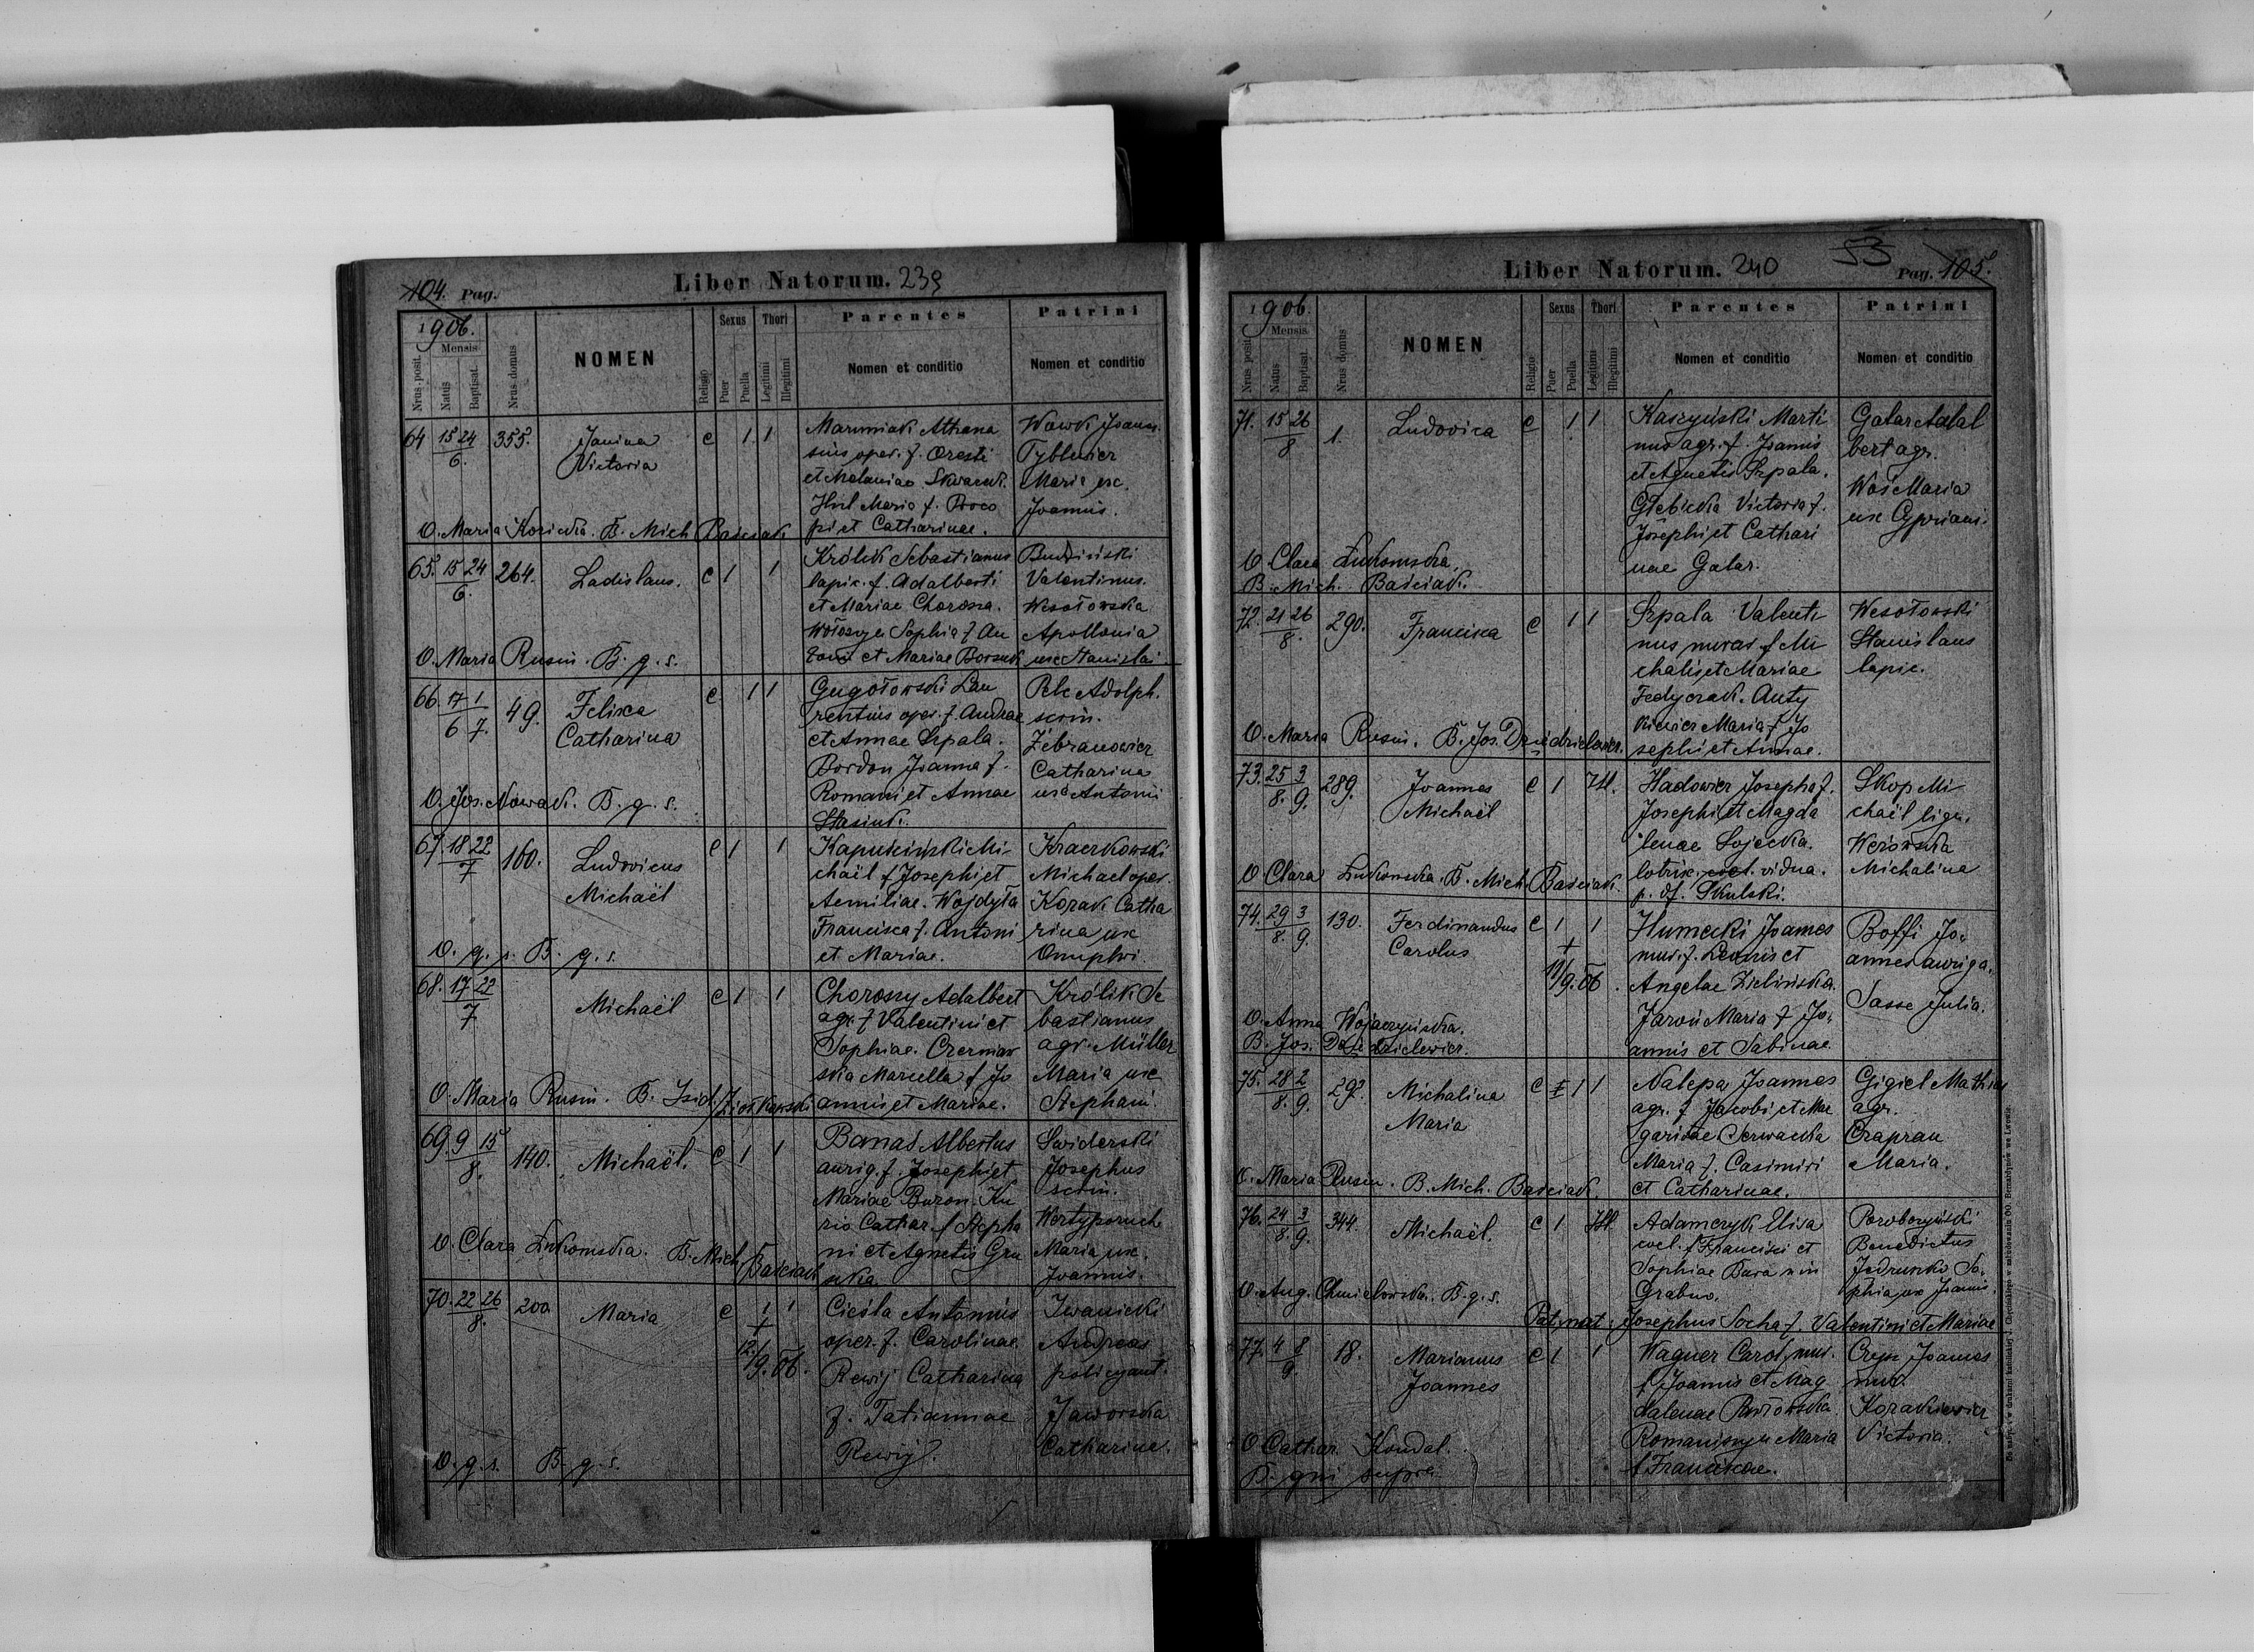 104. Pag.
Liber Natorum. 239
1906.
Nrus posit.
Mensis
Natus
Baptisat.
Nrus domus
NOMEN
Religio
Sexus
Puer
Puella
Thori
Legitimi
Illegitimi
Parentes
Nomen et conditio
Patrini
Nomen et conditio
64 15 24 355. Janina c 1 1
6.
Victoria
Marumiak Athana
sius oper. f. Oresti
et Melaniae
Hul Maria f. Proco
pi et Catharinae.
Wowk Joann.
Maria ux.
Joannis.
O. Maria Kozicka. B. Mich Baściak
65. 15 24 264. Ladislaus. c 1 1
6.
Królik Sebastianus
lapic. f. Adalberti
et Mariae Chorossa.
Wołoszyn Sophia f. An
toni et Mariae
Budziński
Valentinus.
Wesołowska
Apollonia
ux Stanislai
O. Maria Rusin. B. q. s.
66. 17 1 49. Felixa c 1 1
6 7.
Catharina
Gugołowski Lau
rentius oper. f. Andreae
et Annae Szpala.
Bordon Joanna f.
Romani et Annae
Stasiuk.
Pelc Adolph.
scrin.
Żebranowicz
Catharina
ux Antonii
O. Jos. Nowak. B. q. s.
67. 18 22 160. Ludovicus c 1 1
7
Michaël
Kapuściński Mi
chaël f. Josephi et
Aemiliae. Wojdyła
Francisca f. Antoni
et Mariae.
Kraczkowski
Michael oper.
Kozak Catha
rina ux
Onuphri.
O. q. s. B. q. s.
68. 17 22 Michaël c 1 1
7
Chorossy Adalbert
agr. f. Valentini et
Sophiae. Czerniaw
ska Marcella f. Jo
annis et Mariae.
Królik Se
bastianus
agr. Müller
Maria ux
Stephani.
O. Maria Rusin. B. Isid. Ziółkowski
69. 9 15 140. Michaël. c 1 1
8.
Banaś Albertus
aurig. f. Josephi et
Mariae Baron. Ku
rio Cathar. f. Stepha
ni et Agnetis
Swiderski
Josephus
scrin.
Wertyporoch
Maria ux.
Joannis.
O. Clara Łukomska. B. Mich. Baściak
70. 22 26 200 Maria c 1 1
8.
+
12/9. 06.
Cicóła Antonius
oper. f. Carolinae
Rewij Catharina
f. Tatiannae
Rewij.
Iwanicki
Andreas
policyant.
Jaworska
Catharina.
O. q. s. B. q. s.
Liber Natorum. 240
53
Pag. 105.
1906.
Nrus posit.
Mensis
Natus
Baptisat.
Nrus domus
NOMEN
Religio
Sexus
Puer
Puella
Thori
Legitimi
Illegitimi
Parentes
Nomen et conditio
Patrini
Nomen et conditio
71. 15 26 1. Ludovica c 1 1
8
Kaszyński Marti
nus agr. f. Joannis
et Agnetis Szpala.
Głebicka Victoria f.
Josephi et Cathari
nae Galar.
Galar Adal
bert agr.
Waś Maria
ux Cypriani.
O. Clara Łukomska.
B. Mich. Baściak.
72. 21 26 290. Francisca c 1 1
8.
Szpala Valenti
nus murar. f. Mi
chalis et Mariae
Fedyczak. Anty
kiewicz Maria f. Jo
sephi et Annae.
Wesołowski
Stanislaus
lapic.
O. Maria Rusin. B. Jos. Dziedzielewicz.
73. 25 3 289. Joannes c 1 Ill.
8. 9.
Michaël
Hadowicz Josepha f.
Josephi et Magda
lenae Sojecka.
lotrix. vidua.
p. df. Skulski.
Skop Mi
chaël lign.
Werowska
Michalina
O. Clara Łukomska. B. Mich. Baściak.
74. 29 3 130. Ferdinandus c 1 1
8. 9.
Carolus
+
11/9. 06.
Humecki Joannes
mur. f. Leonis et
Angelae Zielińska.
Jaroń Maria f. Jo-
annis et Sabinae.
Boffi Jo-
annes auriga.
Sasse Julia.
O. Anna Wojaczyńska.
B. Jos. Dziedzielewicz.
75. 28 2 292. Michalina c 1 1
8. 9.
Maria
Nalepa Joannes
agr. f. Jacobi et Mar
garitae Serwacka
Maria f. Casimiri
et Catharinae.
Gigiel Mathias
agr.
Czapran
Maria.
O. Maria Rusin. B. Mich. Baściak.
76. 24 3 344. Michaël. c 1 Ill.
8. 9.
Adamczyk Elisa
coel. f. Francisci et
Sophiae
Grabno.
Poroboryński
Benedictus
Jedrunko So-
phia ux Joannis.
O. Aug. Chmielowska. B. q. s.
Pat. nat. Josephus Socha f. Valentini et Mariae
77. 4 8 18. Marianus c 1 1
9.
Joannes
Wagner Carol. mur.
f. Joannis et Mag
dalenae
Romaniszyn Maria
f. Franciscae.
Joannes
mur.
Korakiewicz
Victoria.
O. Cathar. Kondal.
B. qui supra